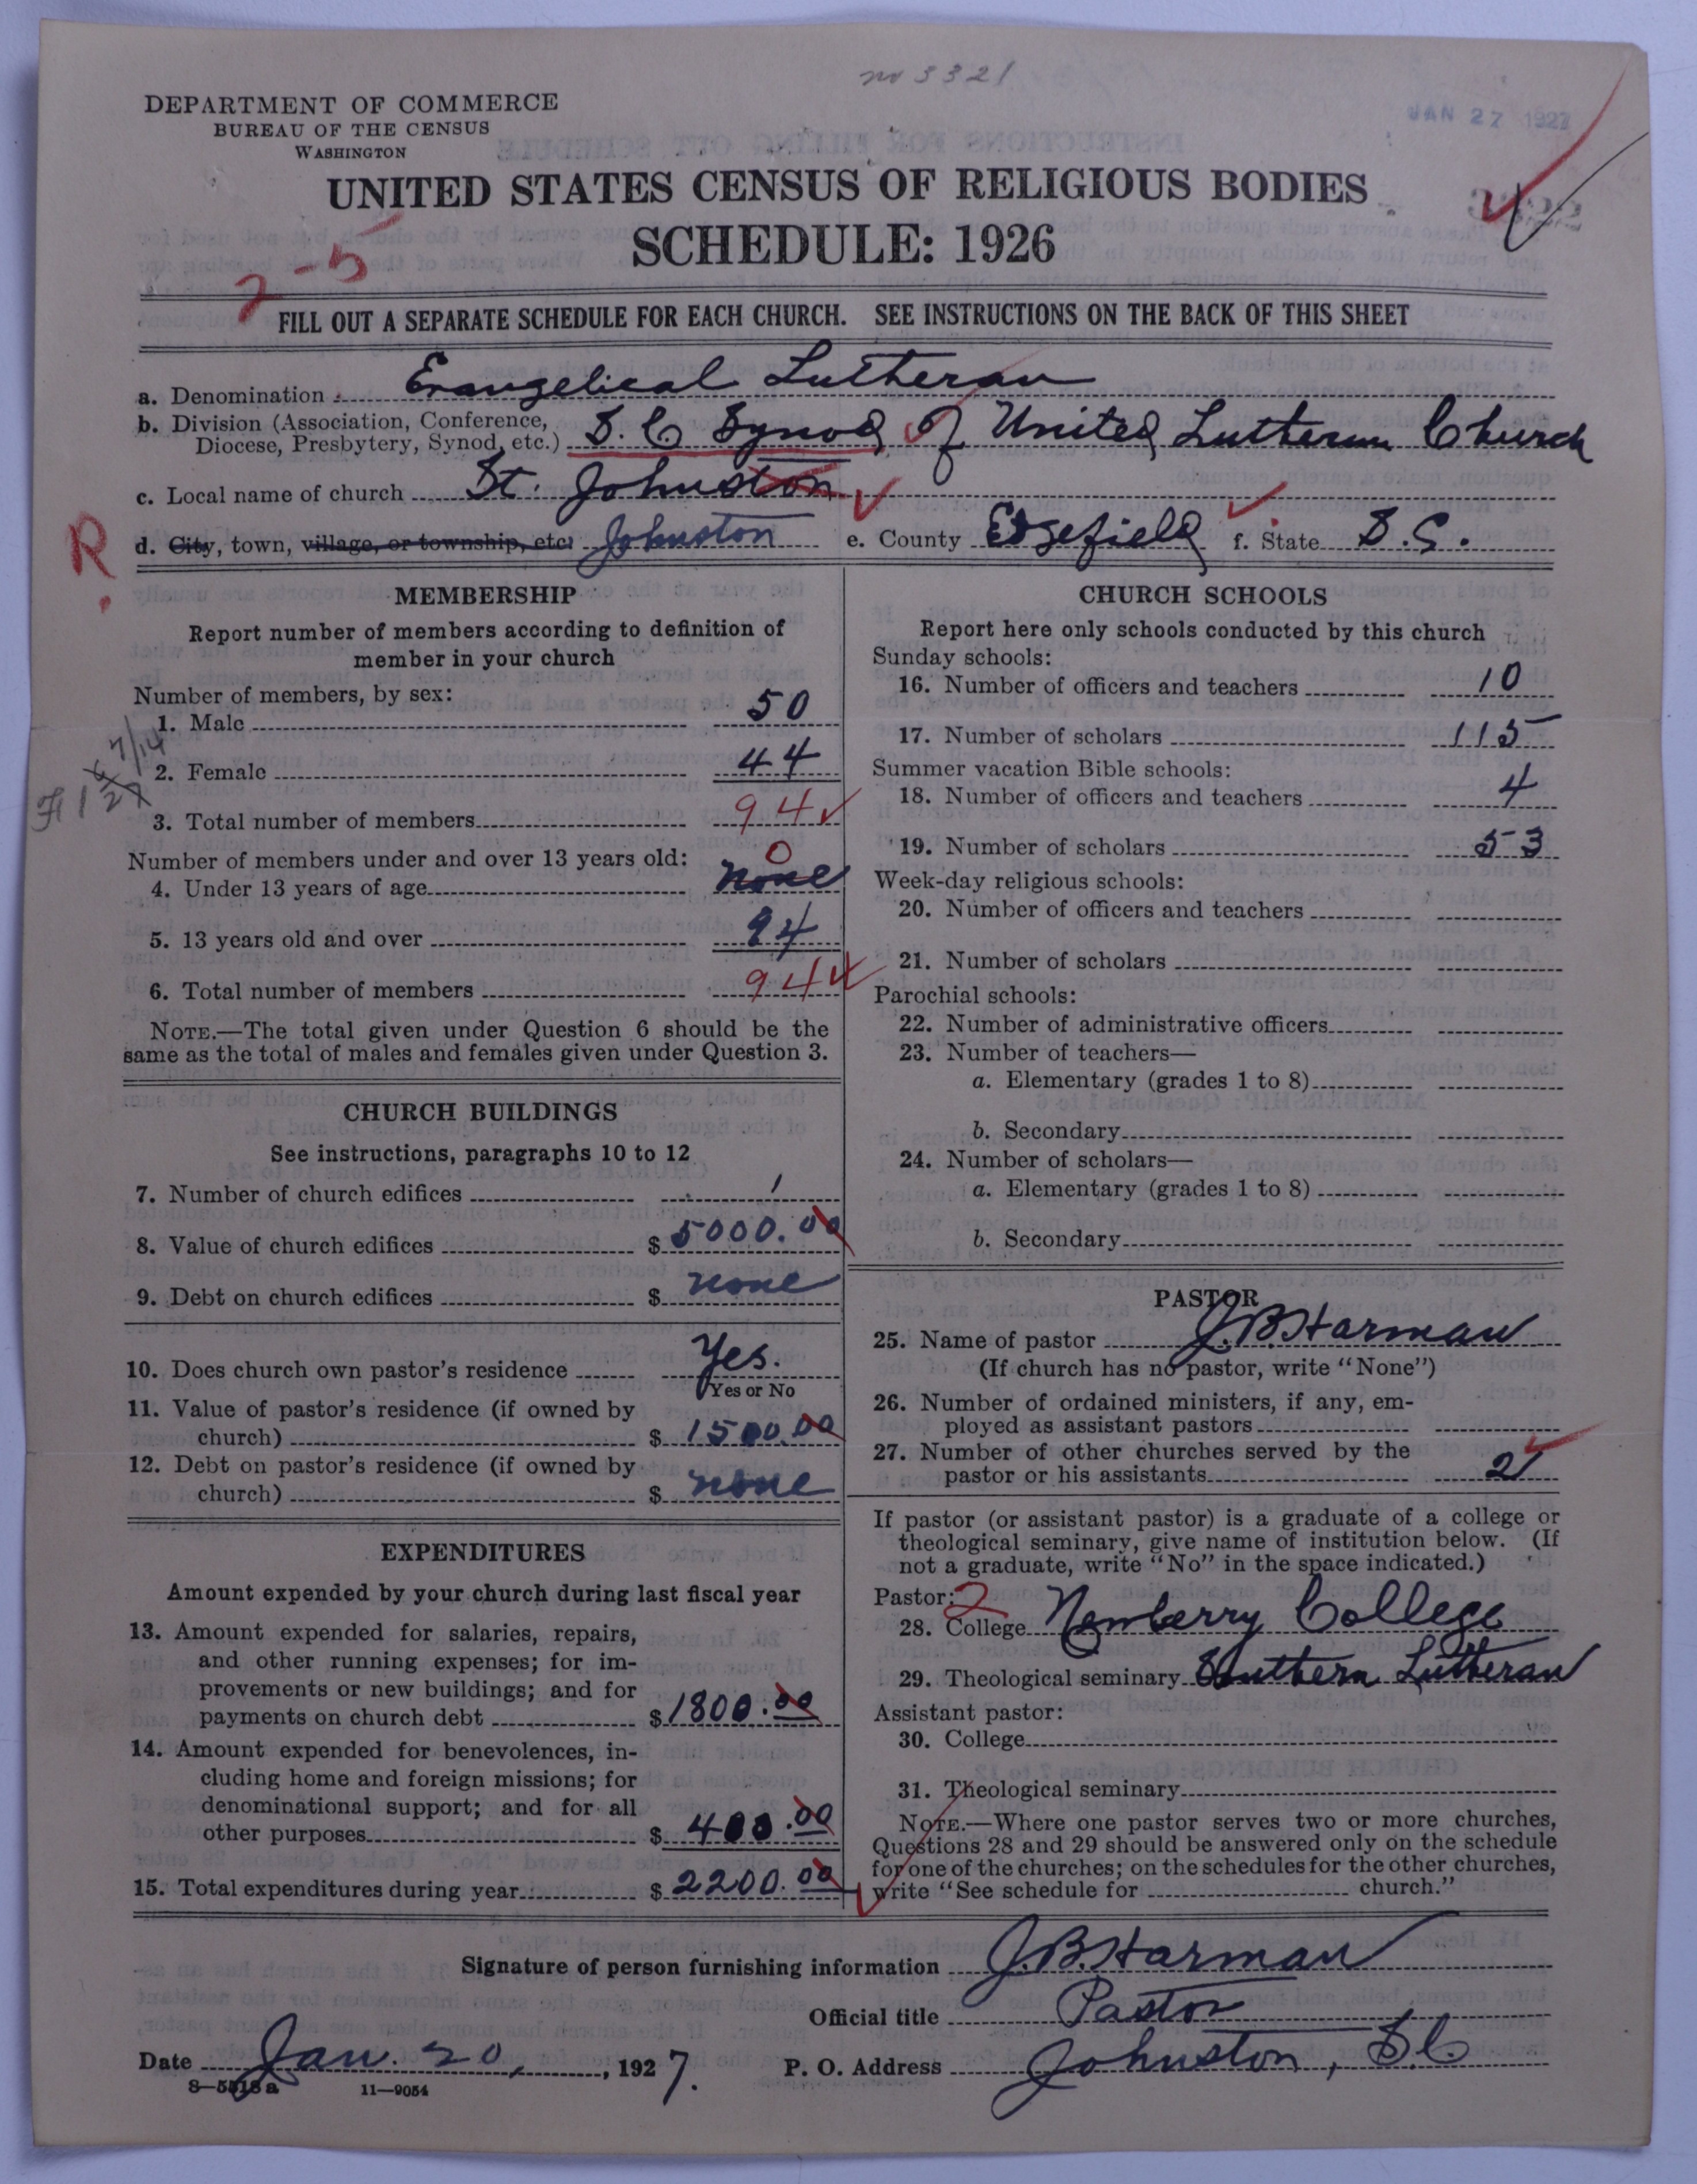 no 3321
DEPARTMENT OF COMMERCE
BUREAU OF THE CENSUS
WASHINGTON
JAN 27 1927
UNITED STATES CENSUS OF RELIGIOUS BODIES
SCHEDULE: 1926
2-5
FILL OUT A SEPARATE SCHEDULE FOR EACH CHURCH. SEE INSTRUCTIONS ON THE BACK OF THIS SHEET
a. Denomination Evangelical Lutheran
b. Division (Association, Conference,
Diocese, Presbytery, Synod, etc.) S. C Synod of United Lutheran Church
c. Local name of church St. Johnston
R.
d. City, town, village, or township, etc. Johnston e. County Edgefield f. State S. C.
MEMBERSHIP
Report number of members according to definition of
member in your church
Number of members, by sex:
1. Male 50
7/14
2. Female 44
3. Total number of members 94
Number of members under and over 13 years old:
0
4. Under 13 years of age none
5. 13 years old and over 94
6. Total number of members 94
NOTE.—The total given under Question 6 should be the
same as the total of males and females given under Question 3.
CHURCH BUILDINGS
See instructions, paragraphs 10 to 12
7. Number of church edifices 1
8. Value of church edifices $ 5000.00
9. Debt on church edifices $ none
10. Does church own pastor's residence Yes.
Yes or No
11. Value of pastor's residence (if owned by
church) $ 1500.00
12. Debt on pastor's residence (if owned by
church) $ none
EXPENDITURES
Amount expended by your church during last fiscal year
13. Amount expended for salaries, repairs,
and other running expenses; for im-
provements or new buildings; and for
payments on church debt $ 1800.00
14. Amount expended for benevolences, in-
cluding home and foreign missions; for
denominational support; and for all
other purposes $ 400.00
15. Total expenditures during year $ 2200.00
CHURCH SCHOOLS
Report here only schools conducted by this church
Sunday schools:
16. Number of officers and teachers 10
17. Number of scholars 115
Summer vacation Bible schools:
18. Number of officers and teachers 4
19. Number of scholars 53
Week-day religious schools:
20. Number of officers and teachers
21. Number of scholars
Parochial schools:
22. Number of administrative officers
23. Number of teachers—
a. Elementary (grades 1 to 8)
b. Secondary
24. Number of scholars—
a. Elementary (grades 1 to 8)
b. Secondary
PASTOR
25. Name of pastor J. B. Harman
(If church has no pastor, write "None")
26. Number of ordained ministers, if any, em-
ployed as assistant pastors
27. Number of other churches served by the
pastor or his assistants 2
If pastor (or assistant pastor) is a graduate of a college or
theological seminary, give name of institution below. (If
not a graduate, write "No" in the space indicated.)
Pastor: 2
28. College Newberry College
29. Theological seminary Southern Lutheran
Assistant pastor:
30. College
31. Theological seminary
NOTE.—Where one pastor serves two or more churches,
Questions 28 and 29 should be answered only on the schedule
for one of the churches; on the schedules for the other churches,
write "See schedule for church."
Signature of person furnishing information J. B. Harman
Official title Pastor
Date Jan. 20, , 1927. P. O. Address Johnston, S. C
8—5518a 11—9054